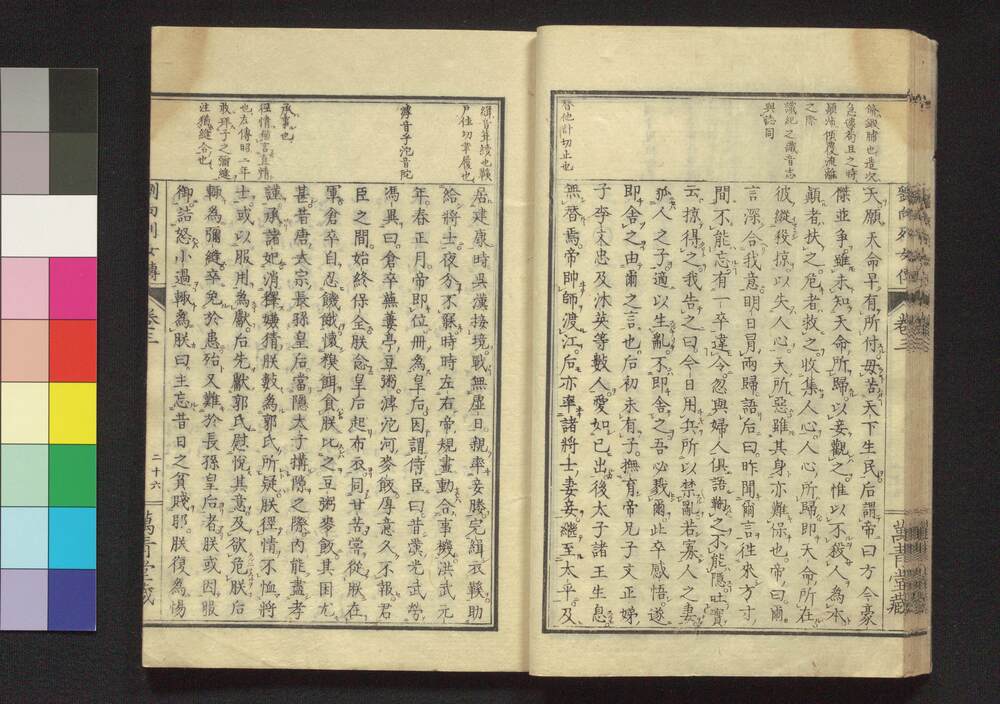 天願天命早有所付毋苦天下生民后謂帝曰方今豪
傑並爭雖未知天命所歸以妾觀之惟以不殺人為本
顛者扶之危者救之收集人心人心所歸即天命所在
彼縱殺掠以失人心天所惡雖其身亦難保也帝曰爾
言深合我意明日冒雨歸語后曰昨聞爾言往來方寸
間不能忘有一卒違令忽與婦人俱語鞫之不能隱吐實
云掠得之我告之曰今日用兵所以禁亂若寡人之妻
孤人之子適以生亂不即舍之吾必戮爾此卒感悟遂
即舍之由爾之言也后初未有子撫育帝兄子文正娣
子李文忠及沐英等數人愛如己出後太子諸王生息
無替焉帝帥師渡江后亦率諸將士妻妾繼至太平及
之際
識紀之識音志
與誌同
替他計切止也
劉向列女傳
卷三
萬青堂藏
居建康時吳漢接境戰無虛日親率妾媵完緝衣鞵助
給將士夜分不寐時時左右帝規畫動合事機洪武元
年春正月帝即位冊為皇后因謂侍臣曰昔漢光武勞
馮異曰倉卒蕪蔞亭豆粥滹沱河麥飯厚意久不報君
臣之間始終保全朕念皇后起布衣同甘苦嘗從朕在
軍倉卒自忍饑餓懷糗餌食朕比之豆粥麥飯其困尤
甚昔唐太宗長孫皇后當隱太子搆隙之際內能盡孝
謹承諸妃消釋嫌猜朕數為郭氏所疑朕徑情不恤將
士或以服用為獻后先獻郭氏慰悅其意及欲危朕后
輒為彌縫卒免於患殆又難於長孫皇后者朕或因服
御詰怒小過輒為朕曰主忘昔日之貧賤耶朕復為惕
緝音葺績也鞵
滹音乎沱音陀
承事也
也左傳昭二年
敢拜子之彌縫
注猶縫合也
劉向列女傳
卷三
二十六
萬青堂藏